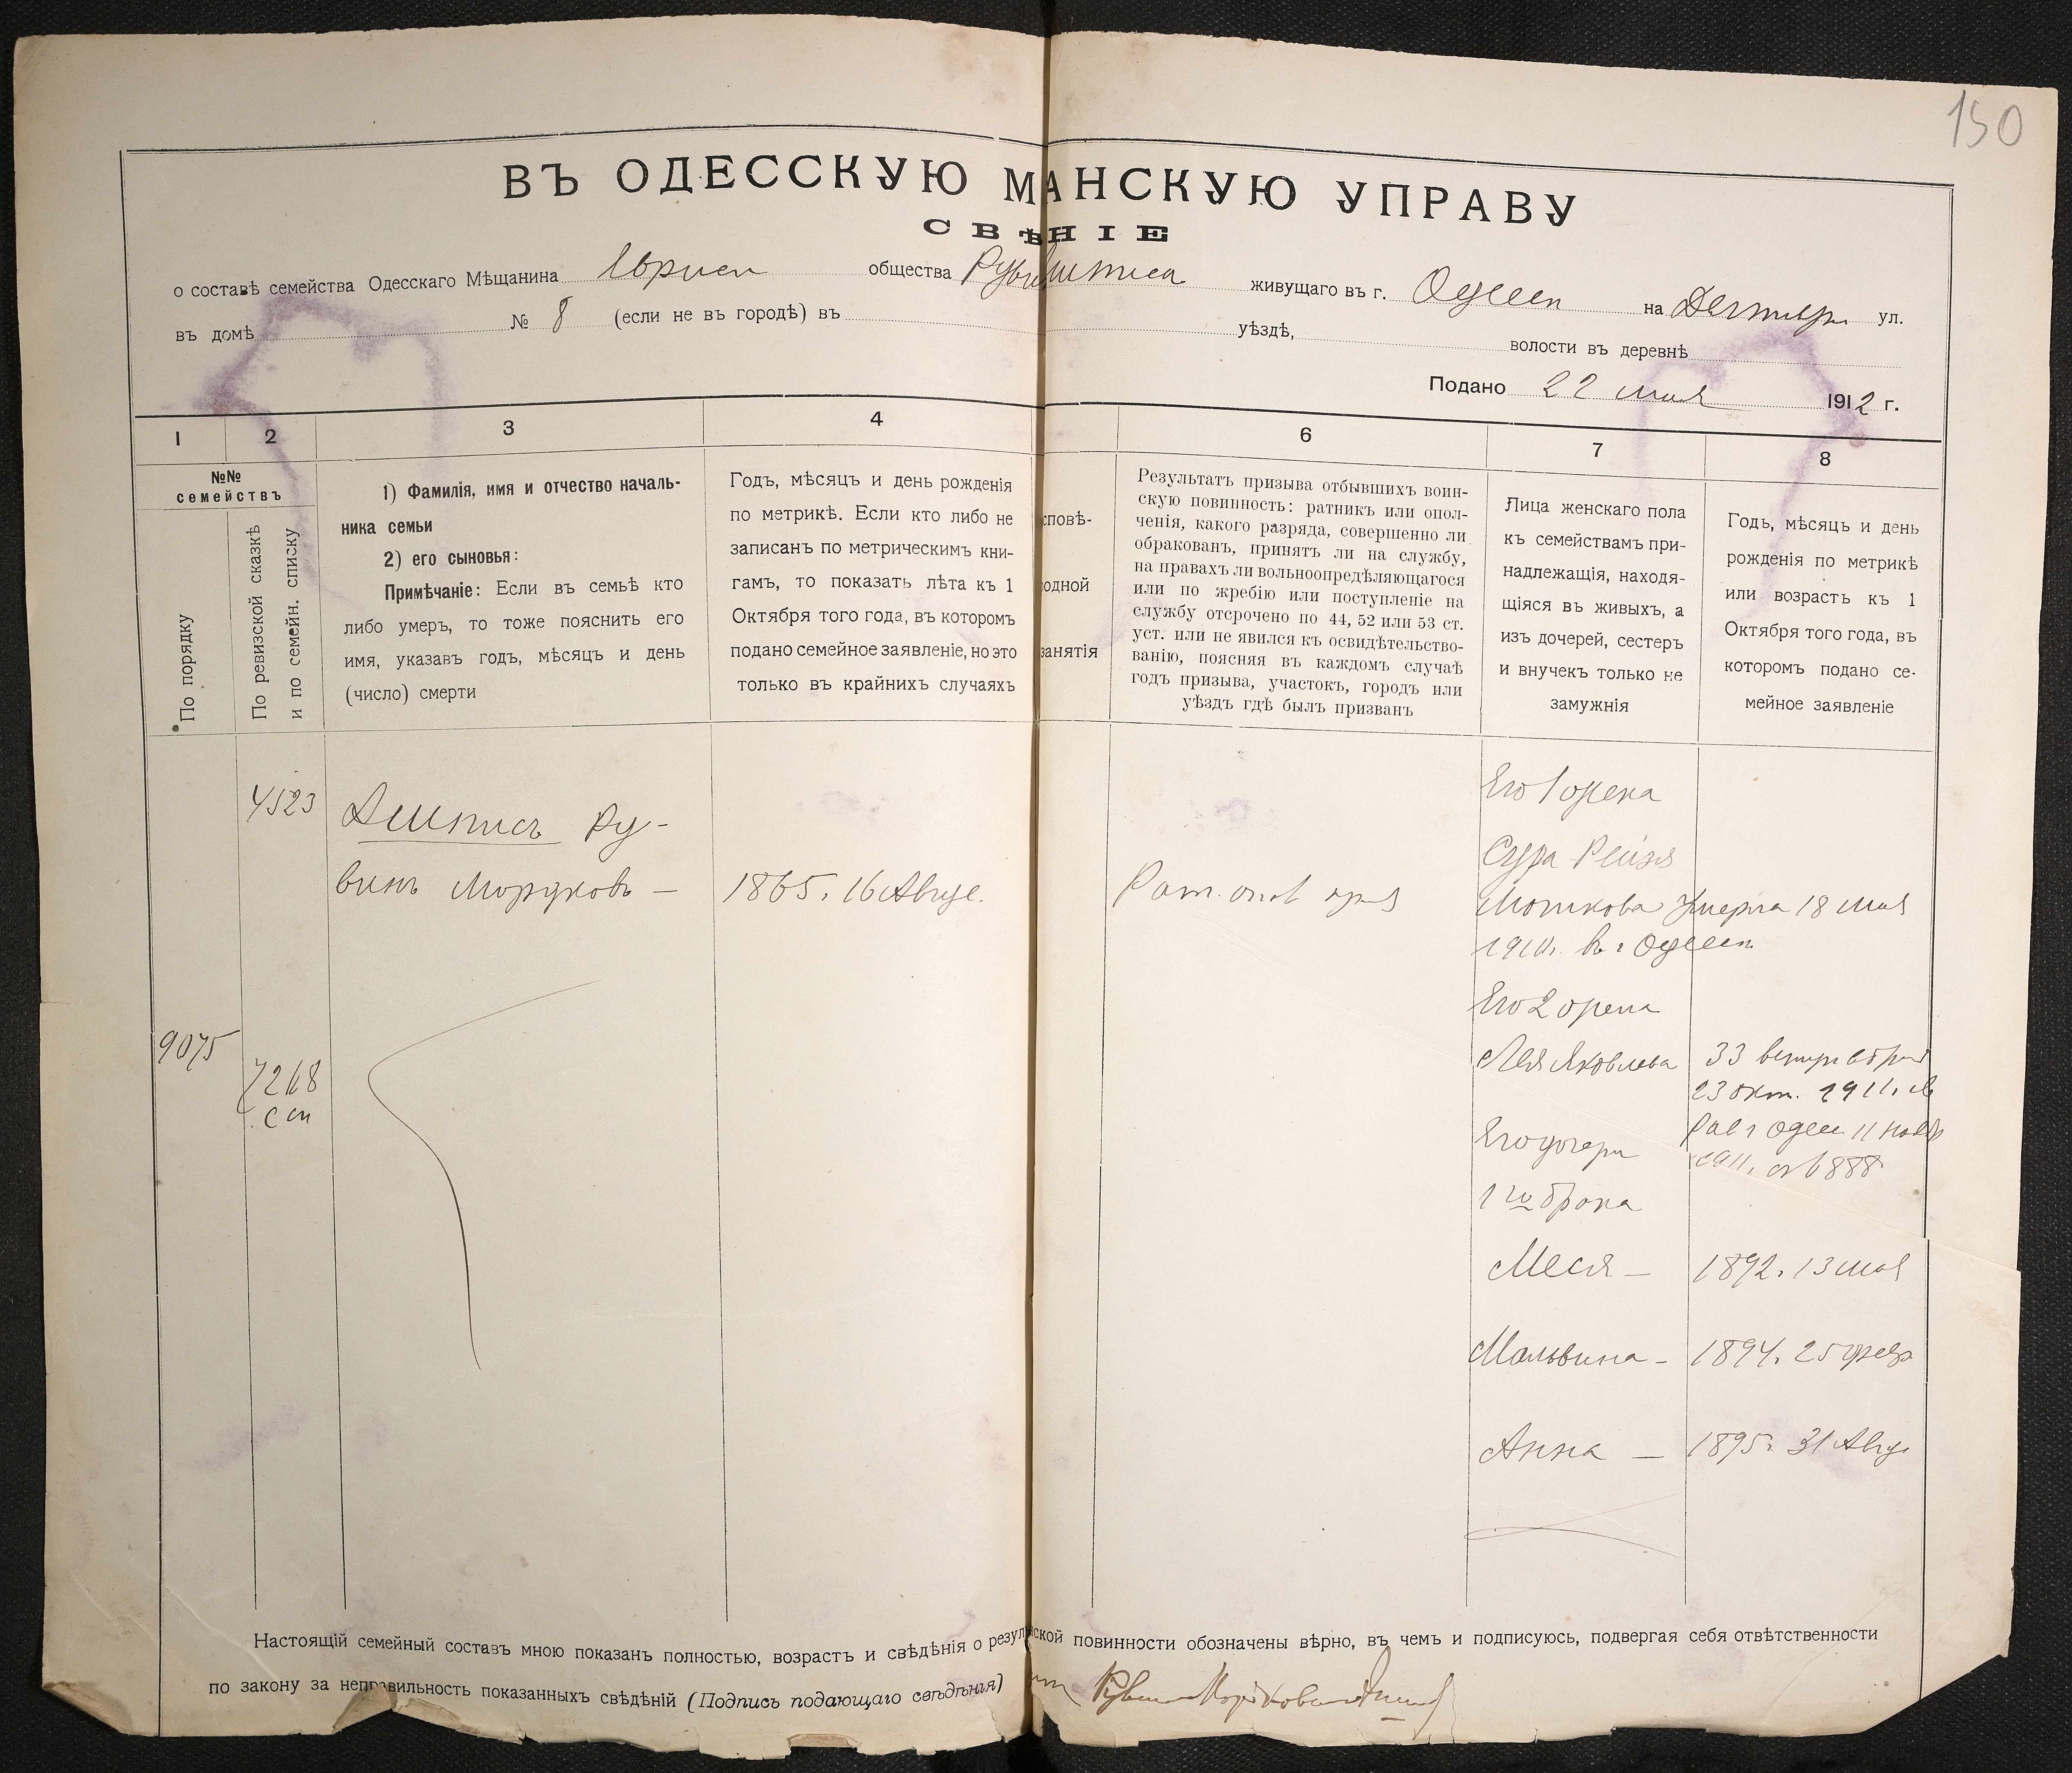 150
ВЪ ОДЕССКУЮ М АНСКУЮ УПРАВУ
СВѢ НІЕ
о составѣ семейства Одесскаго Мѣщанина общества живущаго въ г. Одессѣ на ул.
въ домѣ № 8 (если не въ городѣ) въ уѣздѣ, волости въ деревнѣ
Подано 22 мая 1912 г.
1 2 3 4 6 7 8
№№
семействъ
По порядку
По ревизской сказкѣ
и по семейн. списку
1) Фамилія, имя и отчество началь-
ника семьи
2) его сыновья:
Примѣчаніе: Если въ семьѣ кто
либо умеръ, то тоже пояснить его
имя, указавъ годъ, мѣсяцъ и день
(число) смерти
Годъ, мѣсяцъ и день рожденія
по метрикѣ. Если кто либо не
записанъ по метрическимъ кни-
гамъ, то показать лѣта къ 1
Октября того года, въ которомъ
подано семейное заявленіе, но это
только въ крайнихъ случаяхъ
споведѣ-
одной
занятія
Результатъ призыва отбывшихъ воин-
скую повинность: ратникъ или опол-
ченія, какого разряда, совершенно ли
обракованъ, принятъ ли на службу,
на правахъ ли вольноопредѣляющагося
или по жребію или поступленіе на
службу отсрочено по 44, 52 или 53 ст.
уст. или не явился къ освидѣтельство-
ванію, поясняя въ каждомъ случаѣ
годъ призыва, участокъ, городъ или
уѣздъ гдѣ былъ призванъ
Лица женскаго пола
къ семействамъ при-
надлежащія, находя-
щіяся въ живыхъ, а
изъ дочерей, сестеръ
и внучекъ только не
замужнія
Годъ, мѣсяцъ и день
рожденія по метрикѣ
или возрастъ къ 1
Октября того года, въ
которомъ подано се-
мейное заявленіе
4523
Ашписъ Ру-
винъ Мордковъ —
1865. 16 Авгус.
Рат. опол
Его 1 жена
Сура Рейзя
Мошкова умерла 18 мая
1910г. въ г Одессѣ
Его 2 жена
9075
7268
Лея Яковлева
33
23 окт. 1911.
Его дочери
1911. 888
1 го брака
Меся — 1892. 13 мая
Мальвина — 1894. 25 февр
Анна — 1895. 31 Авгу
Настоящій семейный составъ мною показанъ полностью, возрастъ и свѣдѣнія о резул ской повинности обозначены вѣрно, въ чемъ и подписуюсь, подвергая себя отвѣтственности
по закону за неправильность показанныхъ свѣдѣній (Подпись подающаго свѣдѣнія)